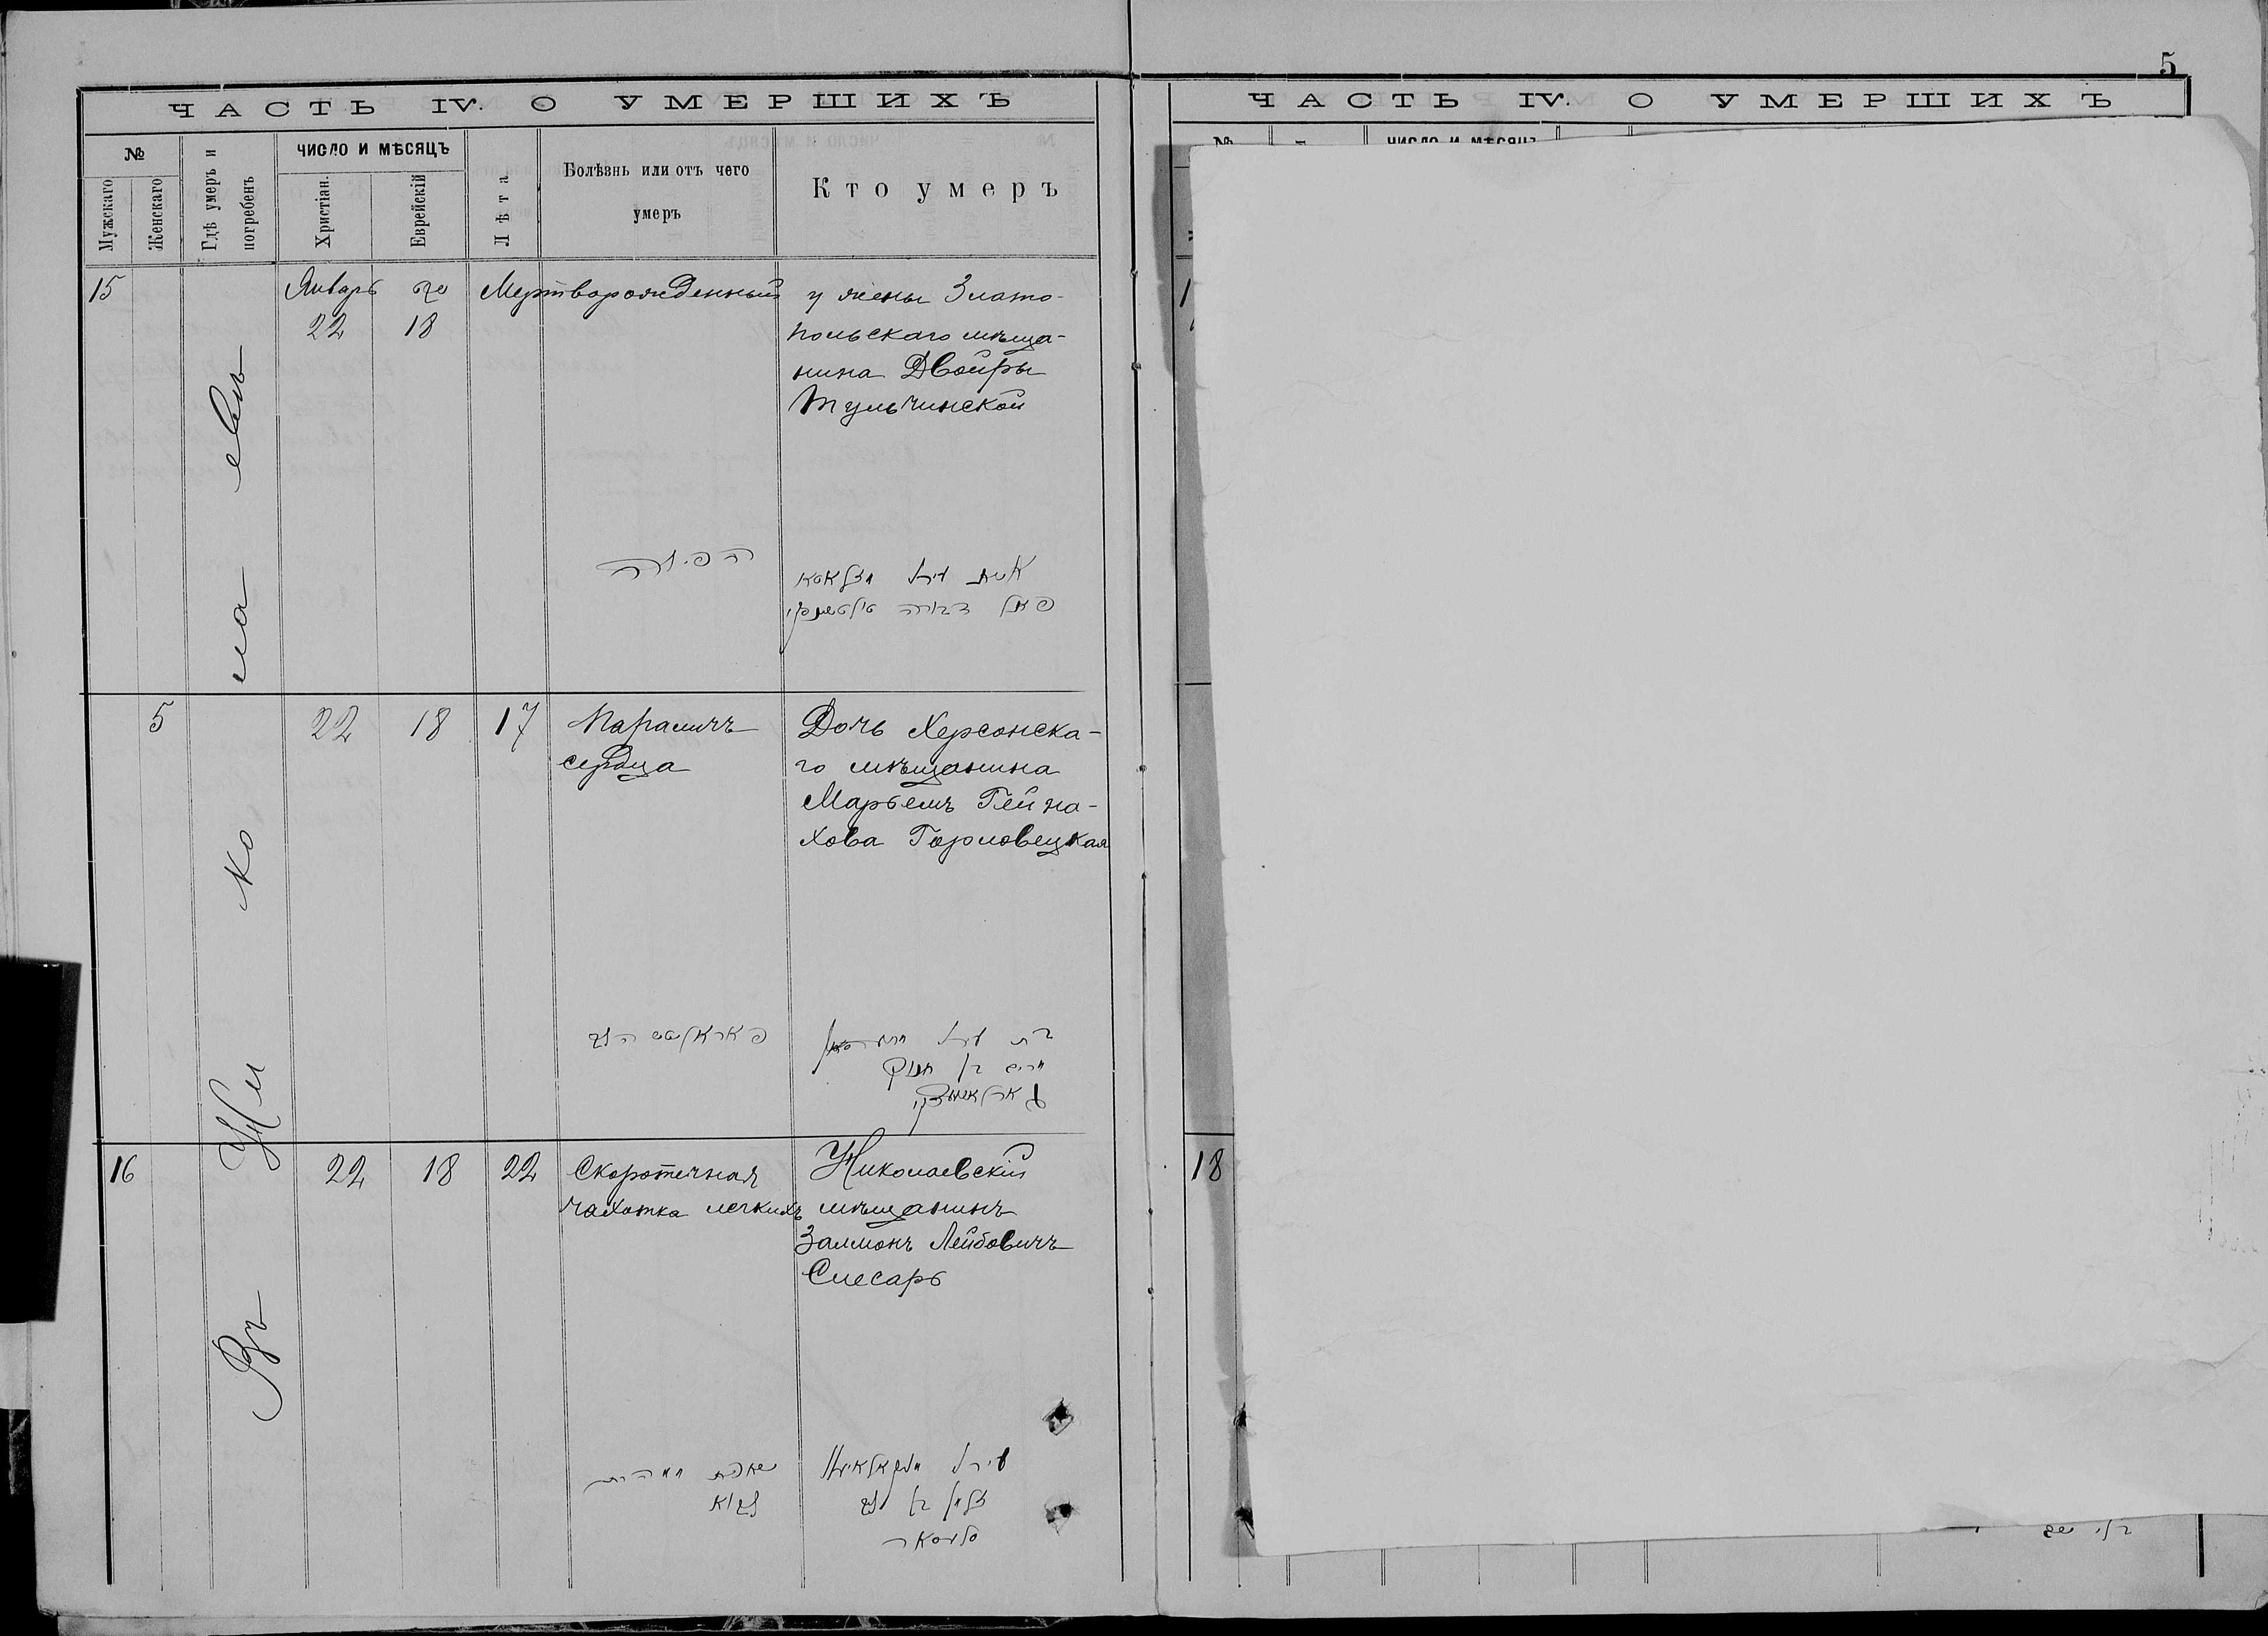 5
ЧАСТЬ IV. О УМЕРШИХЪ
№
Мужскаго
Женскаго
Гдѣ умеръ и погребенъ
ЧИСЛО И МѢСЯЦЪ
Христіан.
Еврейскій
Лѣта
Болѣзнь или отъ чего
умеръ
Кто умеръ
Въ Николаевѣ
15
Январь
22
שבט
18
Мертворожденный
у жены Злато-
польскаго мѣща-
нина Двойры
Тульчинской
הפילה
5
22
18
17
Параличъ
сердца
Дочь Херсонска-
го мѣщанина
Марьемъ Гейна-
хова Горловецкая
16
22
18
22
Скоротечная
чахотка легкихъ
Николаевскій
мѣщанинъ
Залмонъ Лейбовичъ
Слесарь
זלמן בן לייב
סלעסאר
ЧАСТЬ IV. О УМЕРШИХЪ
№
ЧИСЛО И МѢСЯЦЪ
18